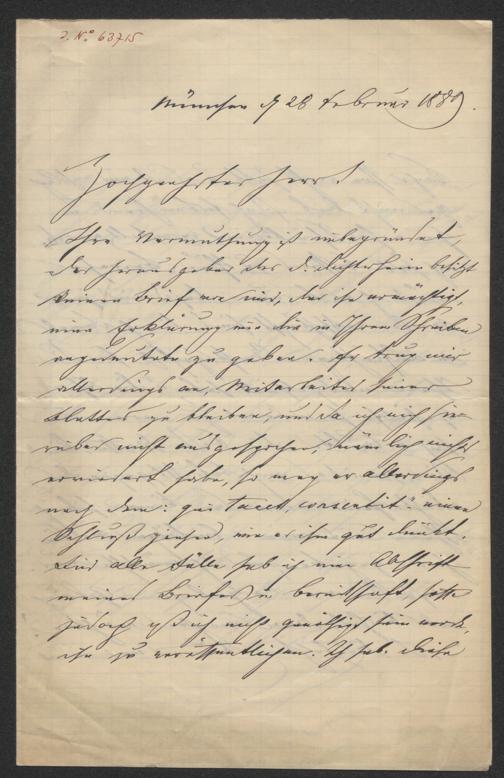 J. N.° 63715
München d 28 Februar 1889.
Hochgeehrter Herr!
Ihre Vermuthung ist unbegründet,
der Herausgeber des d. Dichterheim besitzt
keinen Brief von mir, der ihn ermächtigt,
eine Erklärung wie die in Ihrem Schreiben
angedeutete zu geben. Er trug mir
allerdings an, Mitarbeiter seines
Blattes zu bleiben, und da ich mich hie-
rüber nicht ausgesprochen, nämlich nichts
erwiedert habe, so mag er allerdings
nach dem: qui tacet, consentit" einen
Schluß ziehen, wie es ihm gut dünkt.
Für alle Fälle hab ich eine Abschrift
meines Briefes in bereitschaft, hoffe
jedoch daß ich nicht genöthigt sein werde,
ihn zu veröffentlichen. Ich hab. diese